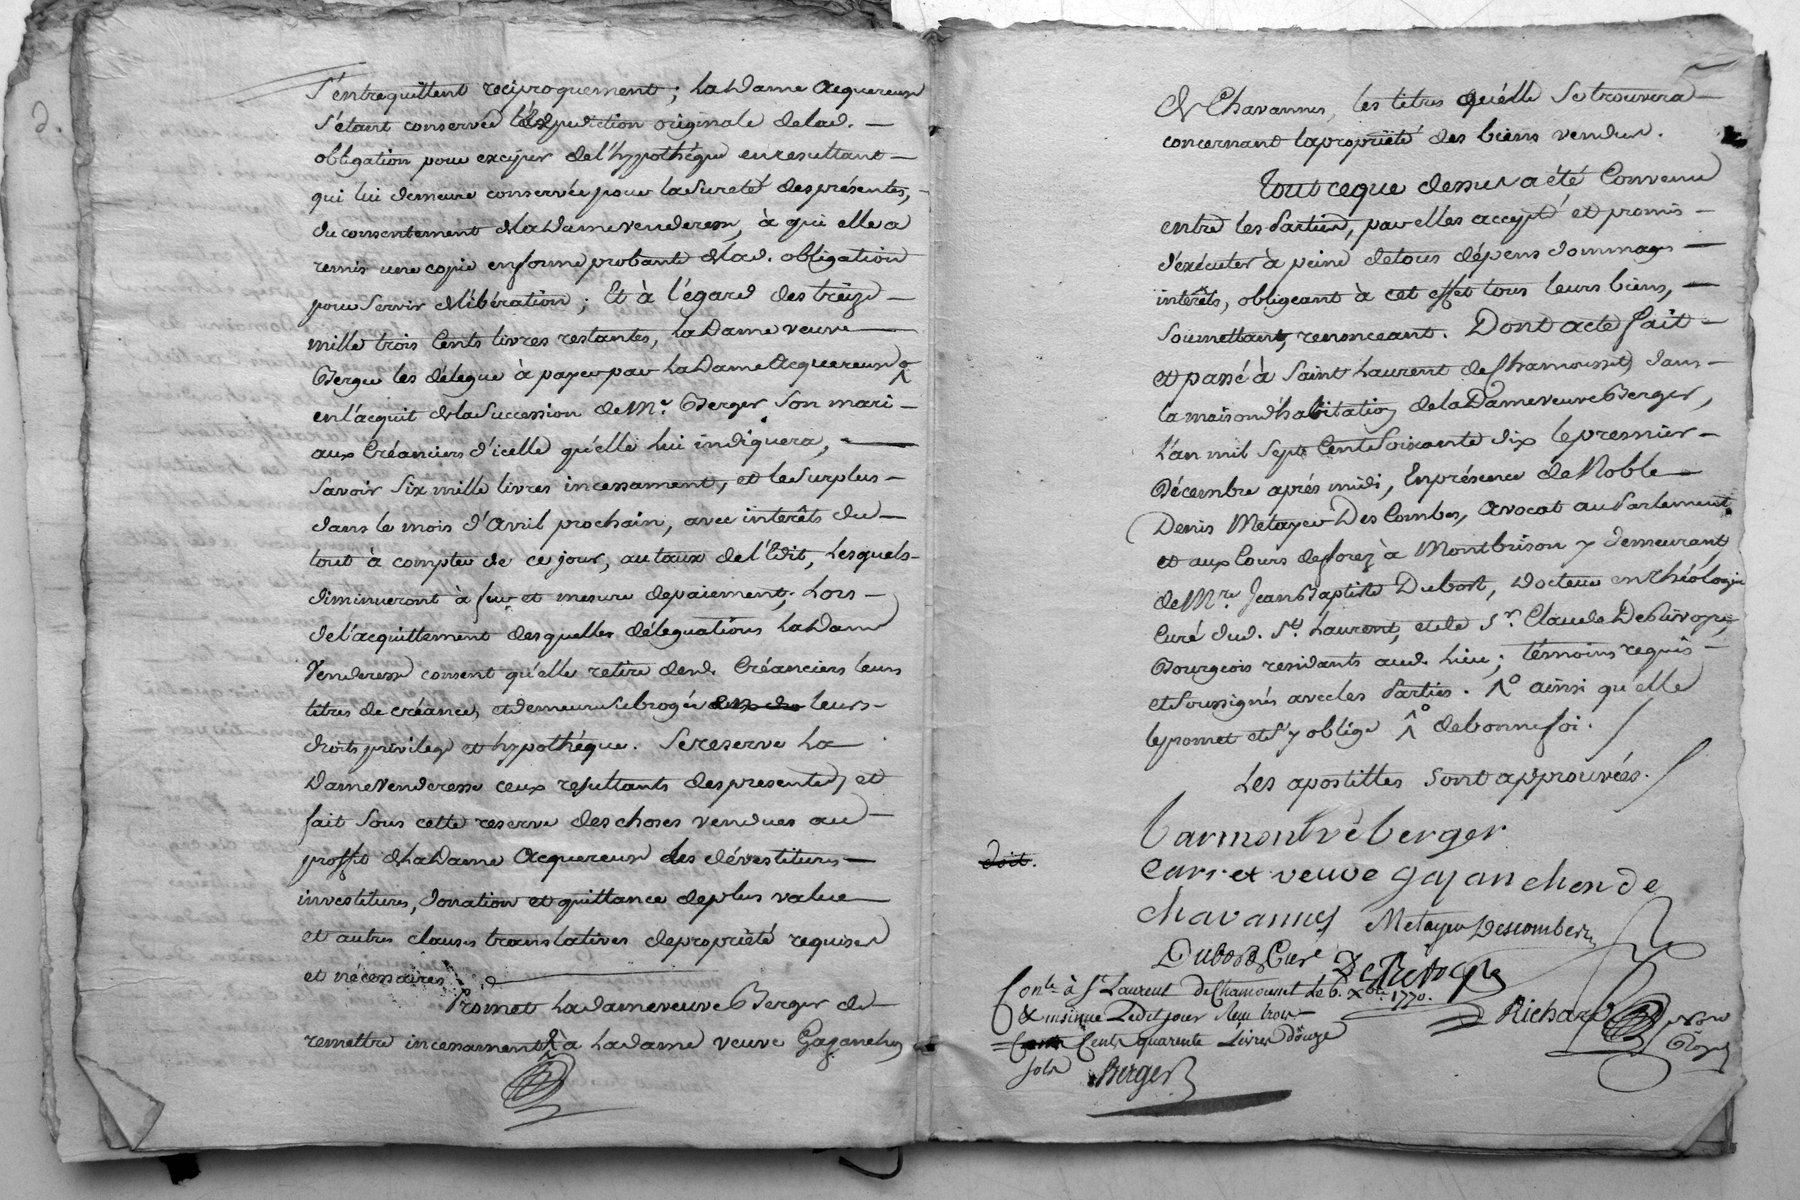 2.
S'entrequittent reciproquement; La Dame acquereuse
s'étant conservée l'expedition originale de lad. —
obligation pour exciper de l'hypothéque en resultant —
qui lui demeure conservée pour la sureté des présentes, —
du consentement de la Dame venderesse, à qui elle a
remis une copie en forme probante de lad. obligation
pour servir de libération; Et à l'égard des treize —
mille trois cents livres restantes, la Dame veuve —
Berger les délegue à payer par La Dame Acquereuse
en l'acquit de la Succession de Mr. Berger son mari —
aux Créanciers d'icelle qu'elle lui indiquera, —
savoir six mille livres incessament, et le surplus —
dans le mois d'avril prochain, avec intérêts du —
tout à compter de ce jour, au taux de l'Edit, Lesquels —
diminueront à fur et mesure de paiement; Lors —
de l'acquittement desquelles délegations La Dame
Venderesse consent qu'elle retire desd. Créanciers leurs
titres de créances, et demeure subrogée leurs —
droits privilege et hypothéque. Se reserve La
Dame Venderesse ceux resultants des presentes, et
fait sous cette reserve des choses vendues au —
proffit de La Dame Acquereuse les dévestitures —
investitures, donation et quittance de plus value —
et autres clauses translatives de proprieté requises
et nécessaires
Promet La dame veuve Berger de —
remettre incessament à La dame veuve Gajanchon
de Chavannes, les titres qu'elle se trouvera —
concernant la propriété des biens vendus.
Tout ce que dessus a été Convenu
entre les Parties, par elles accepté et promis —
d'exécuter à peine de tous dépens dommages —
intérêts, obligeant à cet effet tous leurs biens, —
soumettant, renonceant. Dont acte fait —
et passé à Saint Laurent de Chamousset, dans —
la maison d'habitation de la Dame veuve Berger,
L'an mil Sept Cent Soixante dix le premier —
Décembre aprés midi, En présence de Noble —
Denis Metayer Des Combes, avocat au Parlement
et aux Cours de forez à Montbrison y demeurant,
de Mre. Jean Baptiste Dubost, Docteur en Théologie
Curé dud. St. Laurent, et de Sr. Claude De
Bourgeois residants aud. Lieu; témoins requis —
et soussignés avec les Parties. ^o ainsi qu'elle
le promet et s'y oblige ^o de bonne foi.
Les apostilles sont approuvées.
doit.
Carmont vê berger
veuve gajanchon de
chavannes Metayer Descombes
Dubost Curé
Richard Nore Royal
Conlé à St Laurent De Chamousset Le 6. Xbre 1770.
& insinué Ledit jour Reçu trois —
Cents quarente Livres Douze
sols Berger